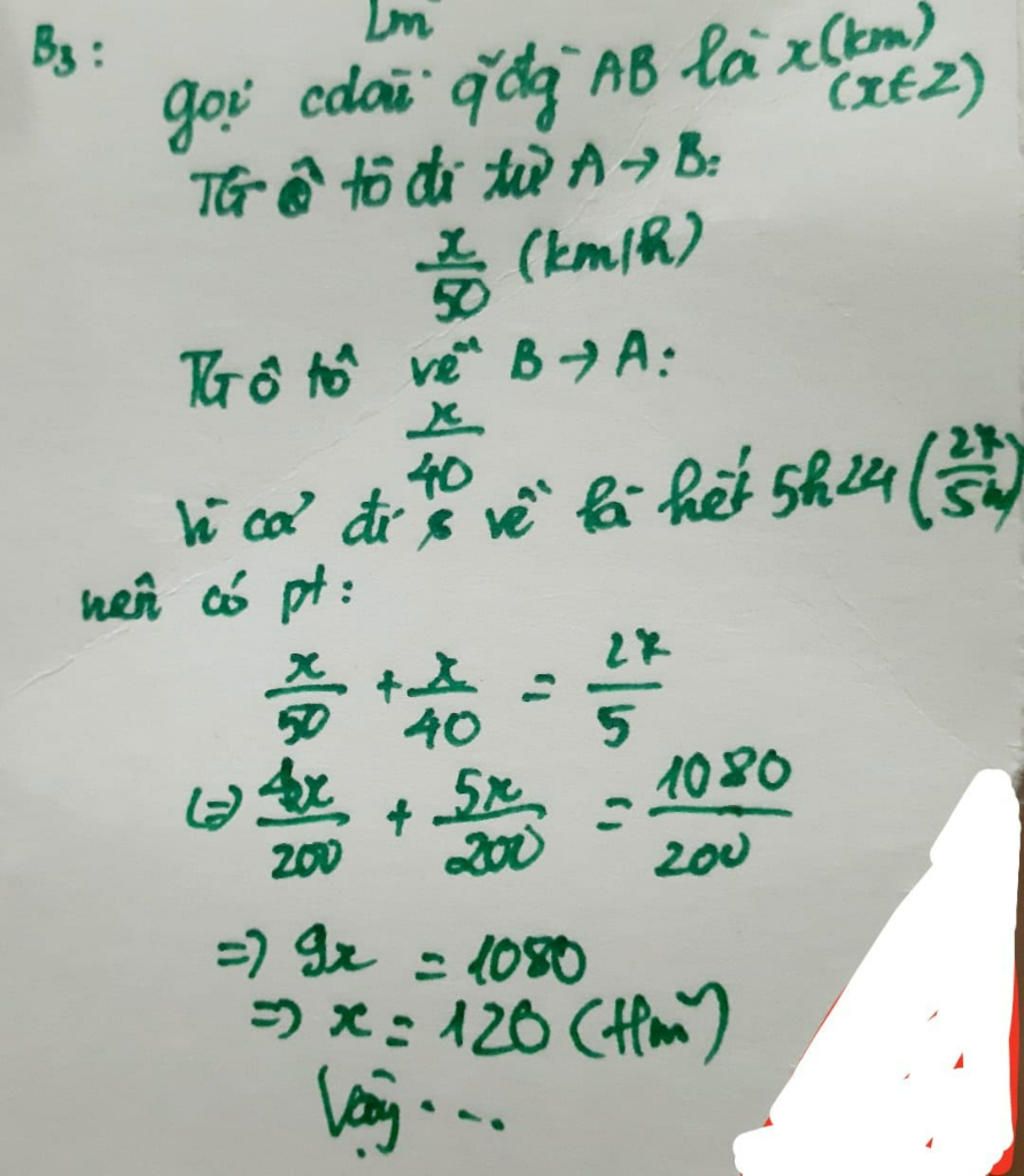 B3:
Lm
gọi cdài qđg AB là x(km)
(x∈Z)
TG ô tô đi từ A → B:
x/50 (km/h)
TG ô tô về B → A:
x/40
Vì cả đi & về là hết 5h24 (27/5h)
nên có pt:
x/50 + x/40 = 27/5
(=) 4x/200 + 5x/200 = 1080/200
=> 9x = 1080
=> x = 120 (tm)
Vậy ...